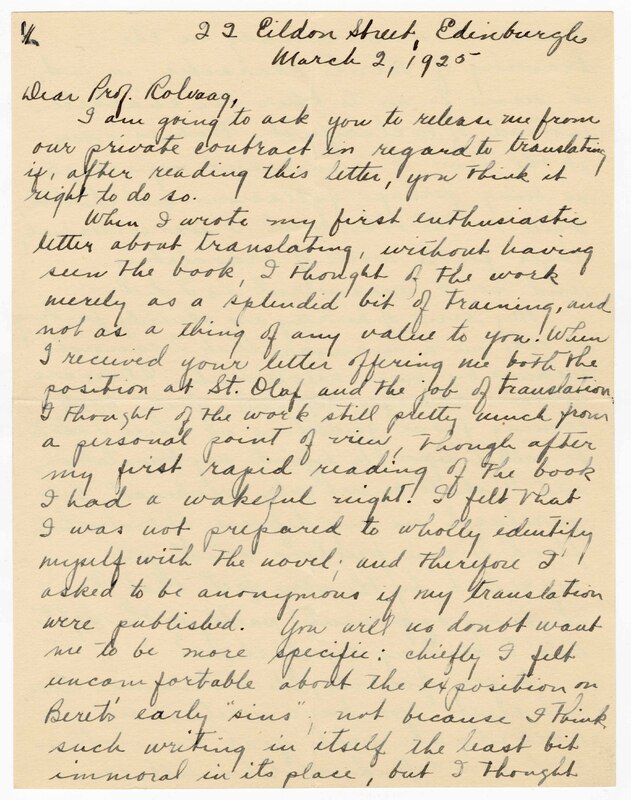 1/
22 Eildon Street, Edinburgh
March 2, 1925
Dear Prof. Rolvaag,
I am going to ask you to release me from
our private contract in regard to translating
if, after reading this letter, you think it
right to do so.
When I wrote my first enthusiastic
letter about translating, without having
seen the book, I thought of the work
merely as a splendid bit of training, and
not as a thing of any value to you. When
I received your letter offering me both the
position at St. Olaf and the job of translation
I thought of the work still pretty much from
a personal point of view, though after
my first rapid reading of the book
I had a wakeful night. I felt that
I was not prepared to wholly identify
myself with the novel; and therefore I
asked to be anonymous if my translation
were published. You will no doubt want
me to be more specific: chiefly I felt
uncomfortable about the exposition on
Beret's early "sins", not because I think
such writing in itself the least bit
immoral in its place, but I thought